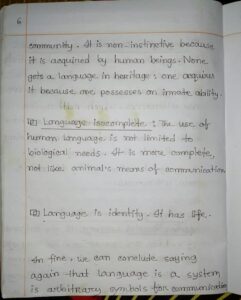 6
community. It is non-instinctive because
it is acquired by human beings. None
gets a language in heritage; one acquires
it because one possesses an innate ability.
Language is complete: The use of
human language is not limited to
biological needs. It is more complete,
not like animal's means of communication
Language is identity. It has life.
In fine, we can conclude saying
again that language is a system
is arbitrary symbols for communication